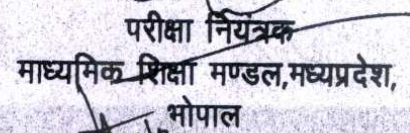 परीक्षा नियंत्रक
माध्यमिक शिक्षा मण्डल,मध्यप्रदेश,
भोपाल